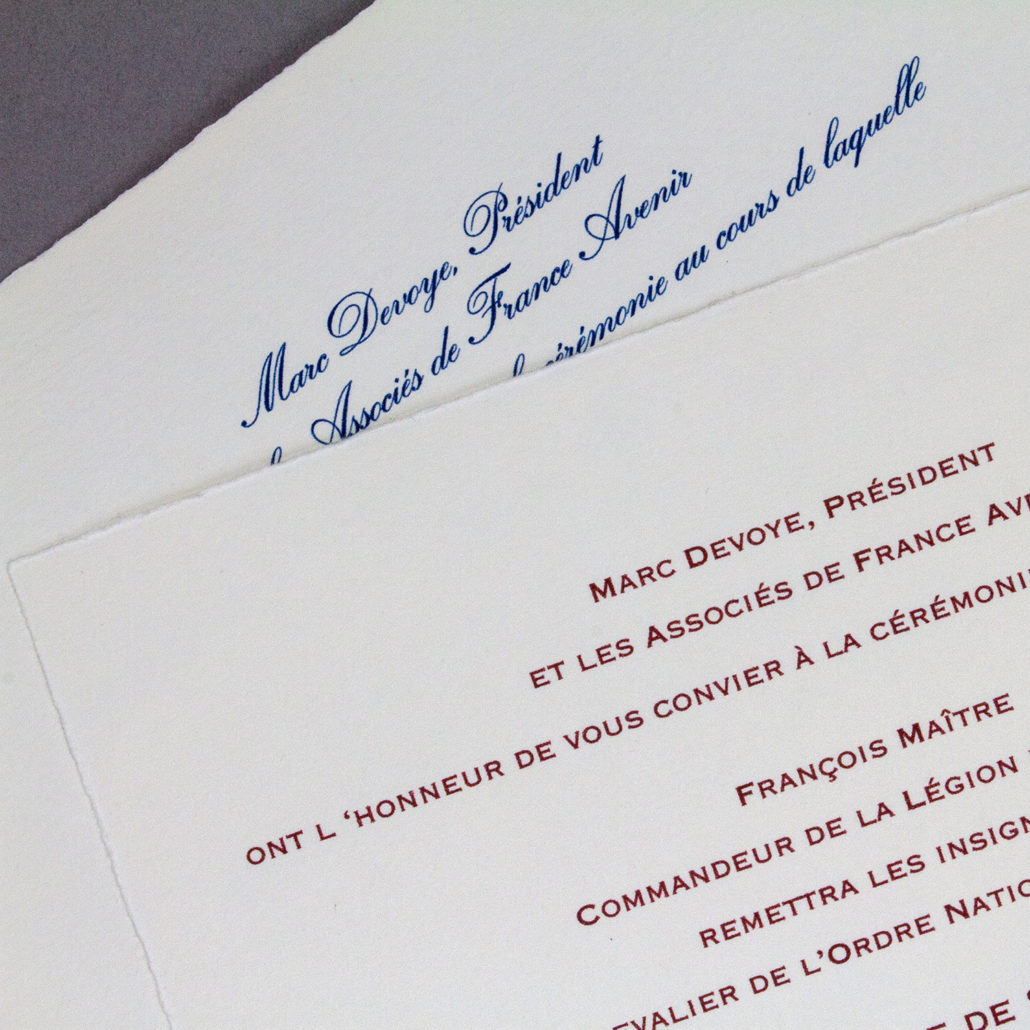 Marc Devoye, Président
Associés de France Avenir
cérémonie au cours de laquelle
Marc Devoye, Président
et les Associés de France
ont l ‘honneur de vous convier à la
François Maître
Commandeur de la Légion
remettra les
de l’Ordre
de